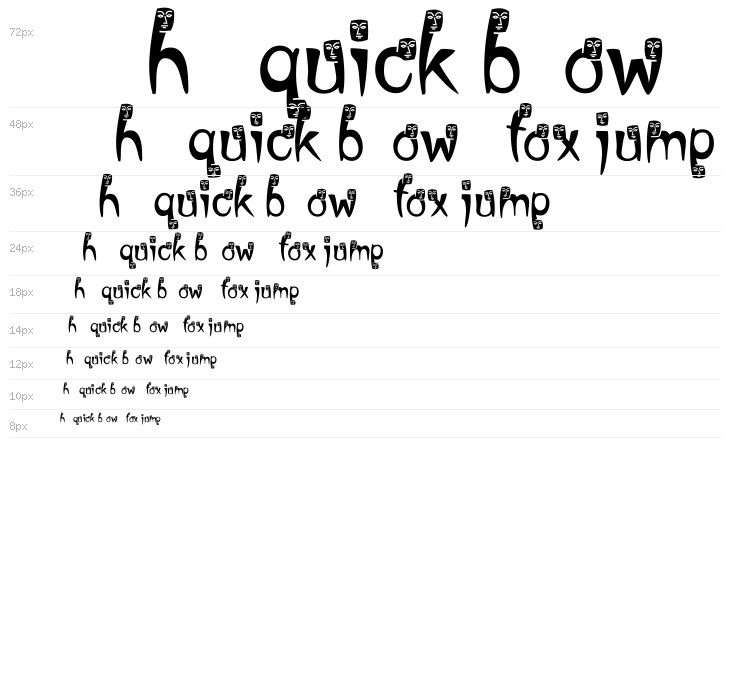 72px h quick b ow
48px h quick b ow fox jump
36px h quick b ow fox jump
24px h quick b ow fox jump
18px h quick b ow fox jump
14px h quick b ow fox jump
12px h quick b ow fox jump
10px h quick b ow fox jump
8px h quick b ow fox jump